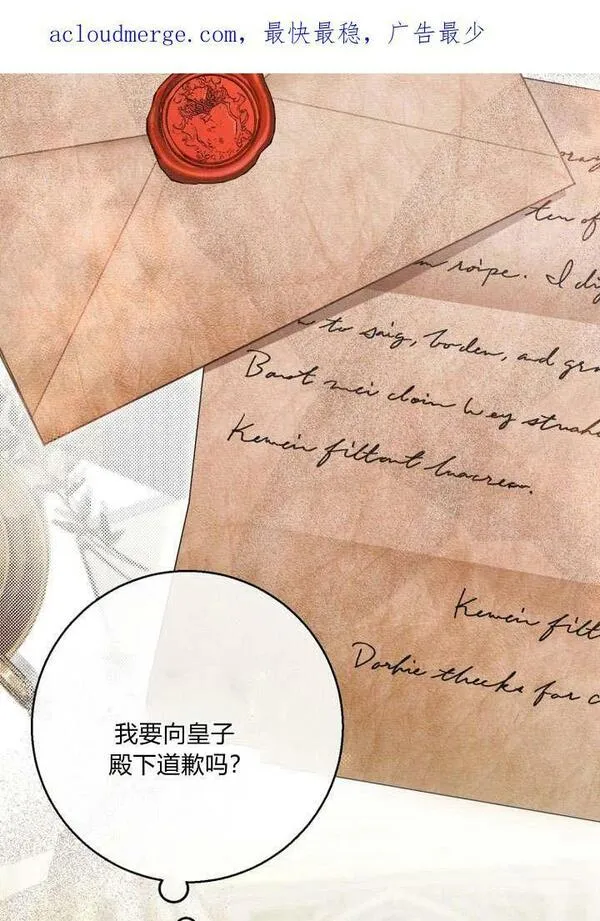 acloudmerge.com，最快最稳，广告最少
ten of
roipe. I di
to saig, boden, and gra
Baot mei cloin wey struhe
Kewein filtont luacress.
Kewein filt
Dorhie thecks for c
我要向皇子
殿下道歉吗？